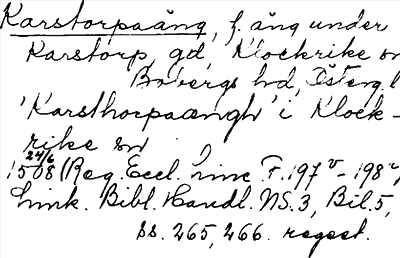 Karstorpaäng, f. äng under
Karstorp, gd, Klockrike sn
Bobergs hd, Östergl
'Karsthorpaængh' i Klock-
rike sn
24/6
1508 (Reg. Eccl. Linc. F. 197 v - 198 r,
Link. Bibl. Handl. NS. 3, Bil. 5,
ss. 265, 266. regest.